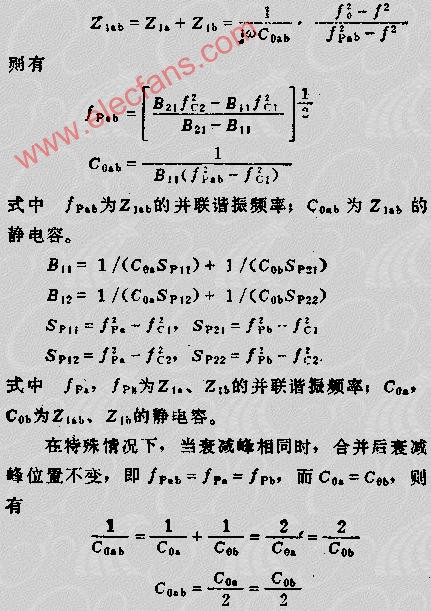 Z₁ab = Z₁a + Z₁b = 1/(jωC₀ab) · (f₀² − f²)/(f²Pab − f²)
则有
fPab = [(B₂₁f²C2 − B₁₁f²C1)/(B₂₁ − B₁₁)]^(1/2)
C₀ab = 1/(B₁₁(f²Pab − f²C1))
式中 fPab为Z₁ab的并联谐振频率；C₀ab 为 Z₁ab 的
静电容。
B₁₁ = 1/(C₀aSP11) + 1/(C₀bSP21)
B₁₂ = 1/(C₀aSP12) + 1/(C₀bSP22)
SP11 = f²Pa − f²C1, SP21 = f²Pb − f²C1
SP12 = f²Pa − f²C2, SP22 = f²Pb − f²C2.
式中 fPa, fPb为Z₁a、Z₁b的并联谐振频率；C₀a,
C₀b为Z₁ab、Z₁b的静电容。
在特殊情况下，当衰减峰相同时，合并后衰减
峰位置不变，即 fPab = fPa = fPb，而 C₀a = C₀b，则
有
1/C₀ab = 1/C₀a + 1/C₀b = 2/C₀a = 2/C₀b
C₀ab = C₀a/2 = C₀b/2
www.elecfans.com